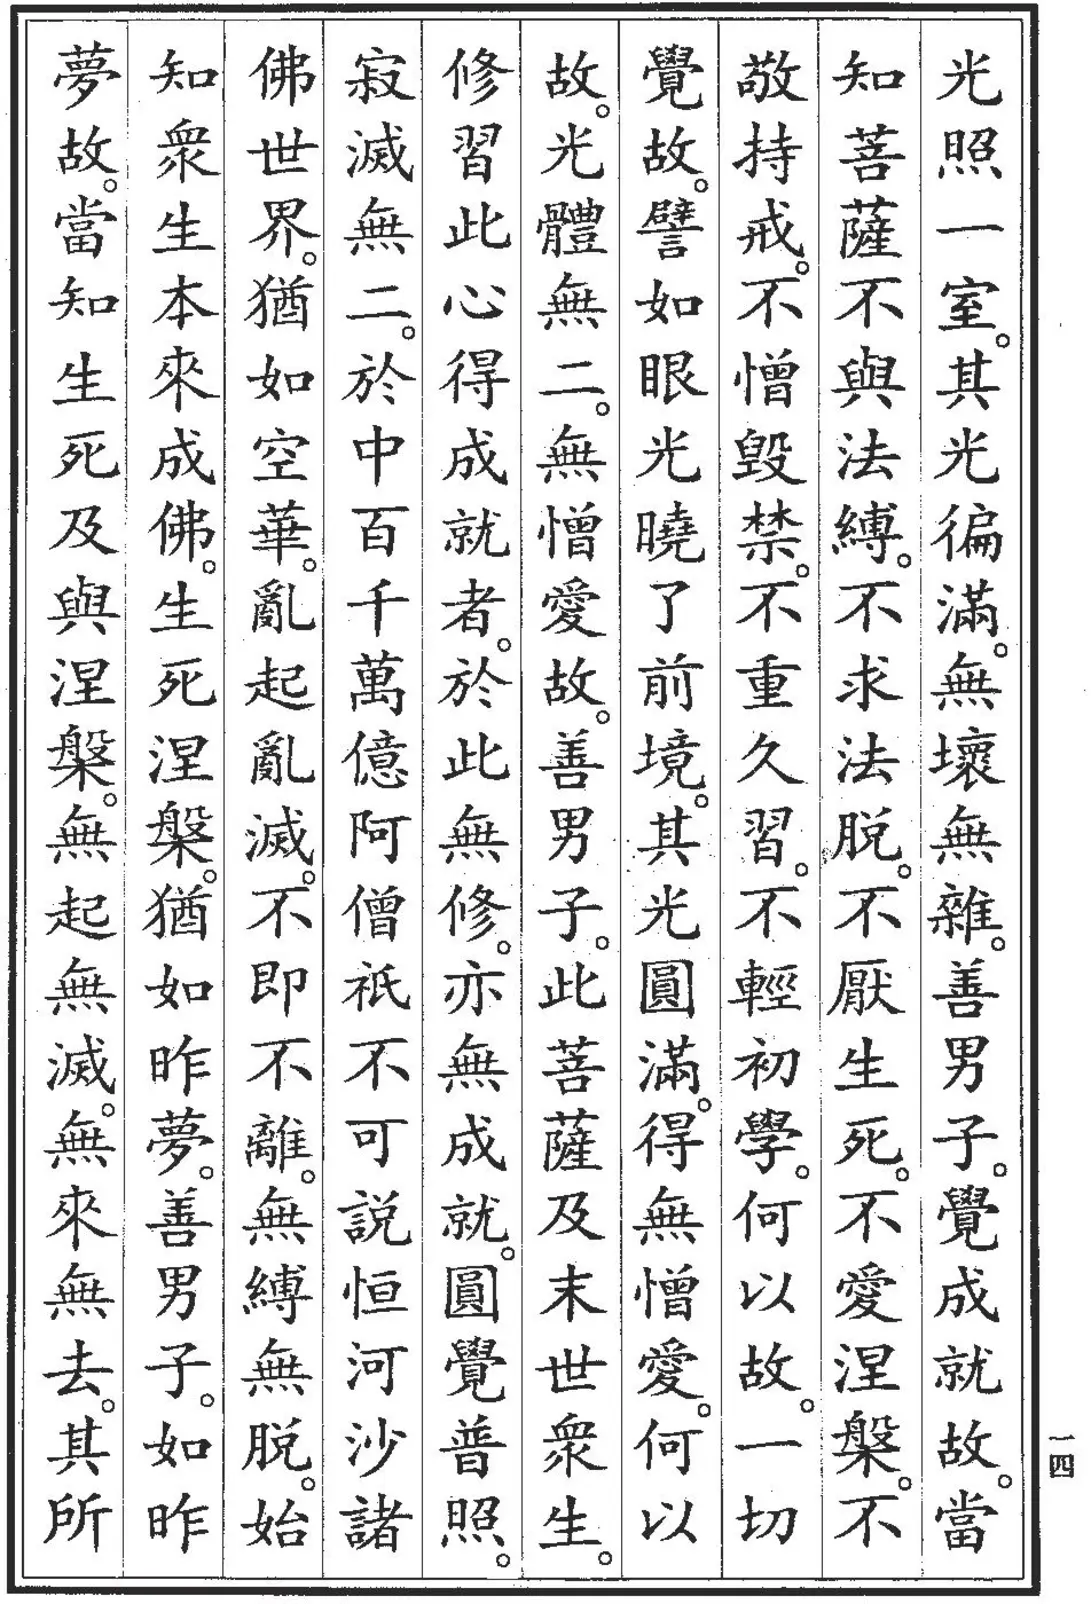 光照一室。其光徧滿。無壞無雜。善男子。覺成就故。當
知菩薩不與法縛。不求法脫。不厭生死。不愛涅槃。不
敬持戒。不憎毀禁。不重久習。不輕初學。何以故。一切
覺故。譬如眼光曉了前境。其光圓滿。得無憎愛。何以
故。光體無二。無憎愛故。善男子。此菩薩及末世眾生。
修習此心得成就者。於此無修。亦無成就。圓覺普照。
寂滅無二。於中百千萬億阿僧祇不可說恒河沙諸
佛世界。猶如空華。亂起亂滅。不即不離。無縛無脫。始
知眾生本來成佛。生死涅槃。猶如昨夢。善男子。如昨
夢故。當知生死及與涅槃。無起無滅。無來無去。其所
一四